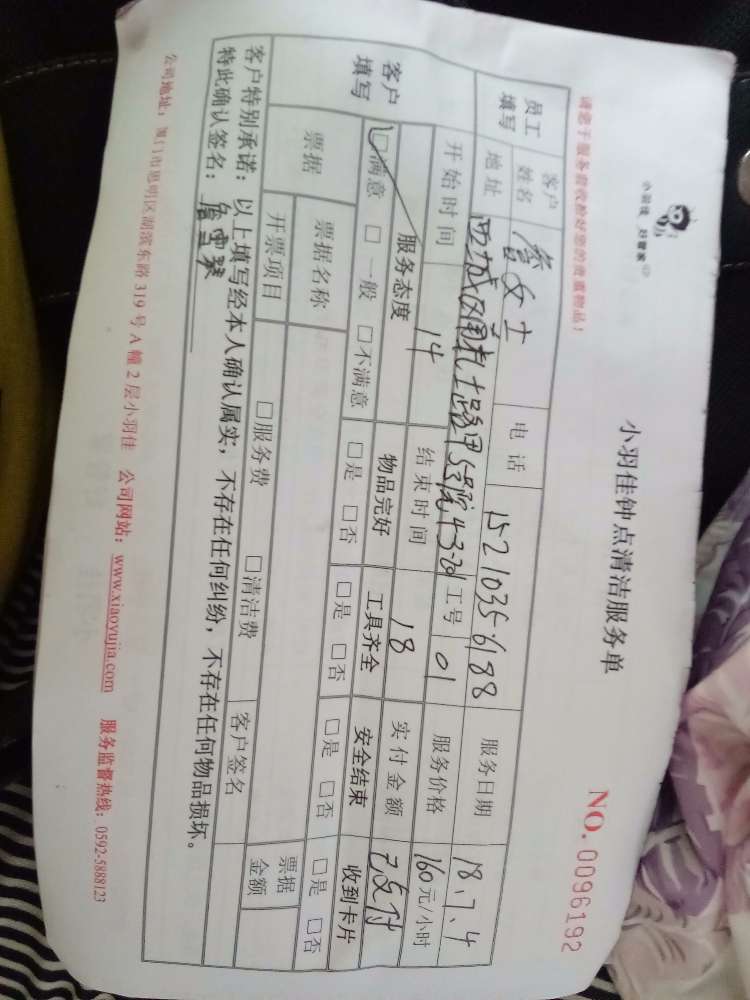 小羽佳 好管家
小羽佳钟点清洁服务单
NO. 0096192
请您于服务前收拾好您的贵重物品！
员工填写 客户姓名 詹女士 电话 15210356188 服务日期 18.7.4
地址 西城区南礼士路甲5号院4-3-701 工号 01 服务价格 160元/小时
开始时间 14 结束时间 18 实付金额 已支付
客户填写 服务态度 物品完好 工具齐全 安全结束 收到卡片
□满意 □一般 □不满意 □是 □否 □是 □否 □是 □否 □是 □否
票据 票据名称 票据金额
开票项目 □服务费 □清洁费 客户签名
客户特别承诺：以上填写经本人确认属实，不存在任何纠纷，不存在任何物品损坏。
特此确认签名：
公司地址：厦门市思明区湖滨东路319号A幢2层小羽佳 公司网站：www.xiaoyujia.com 服务监督热线：0592-5888123